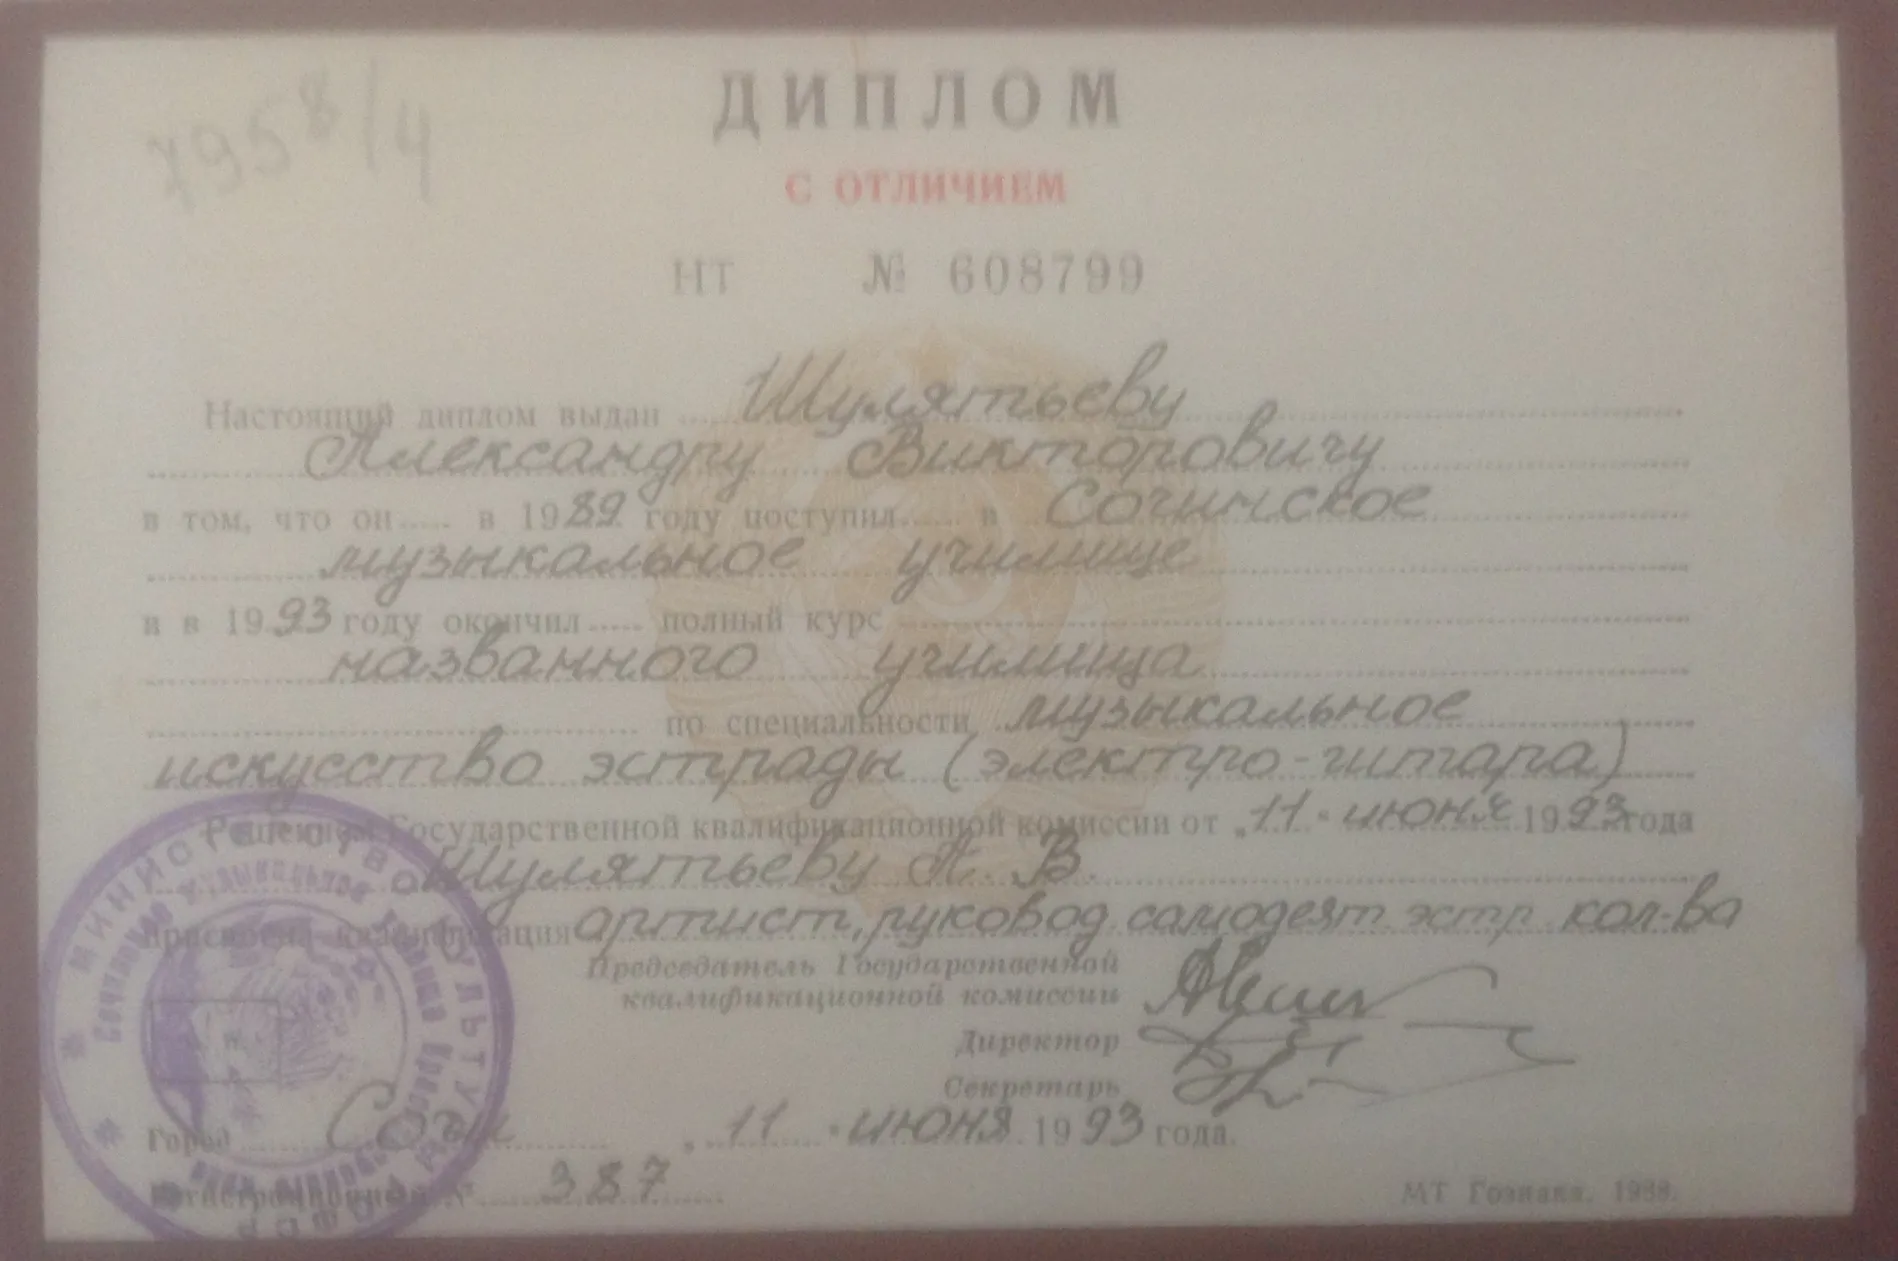 7958/4
ДИПЛОМ
С ОТЛИЧИЕМ
НТ № 608799
Настоящий диплом выдан Шулятьеву
Александру Викторовичу
в том, что он в 1989 году поступил в Сочинское
музыкальное училище
и в 1993 году окончил полный курс
названного училища
по специальности музыкальное
искусство эстрады (электро-гитара)
Решением Государственной квалификационной комиссии от „11“ июня 1993 года
Шулятьеву А. В.
присвоена квалификация артист, руковод. самодеят. эстр. кол-ва
Председатель Государственной
квалификационной комиссии
Директор
Секретарь
Город Сочи „11“ июня 1993 года.
Регистрационный № 387
МТ Гознака. 1988.
МИНИСТЕРСТВО КУЛЬТУРЫ РСФСР
Сочинское музыкальное училище